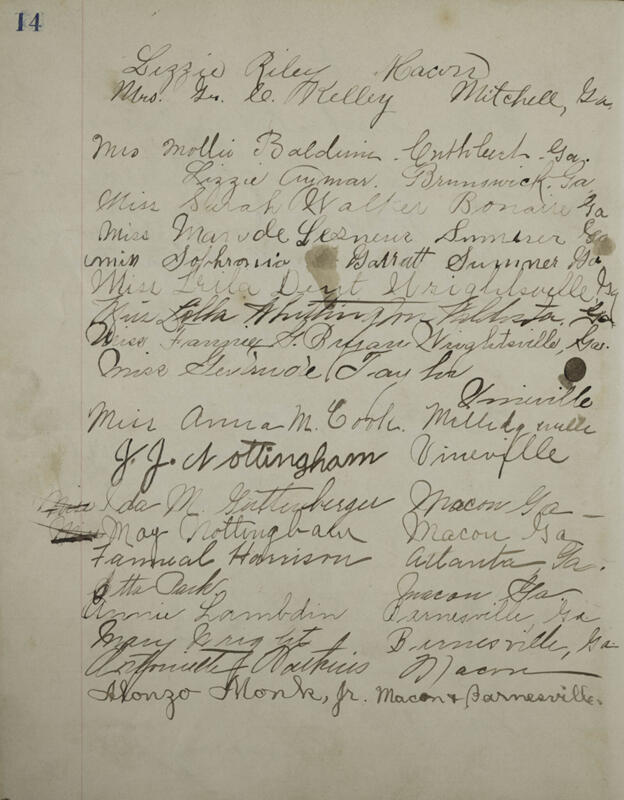 14
Lizzie Riley Macon
Mrs. Gr. C. Kelley Mitchell, Ga.
Mrs Mollie Baldwin Cuthbert Ga.
Lizzie Aymar. Brunswick, Ga
Miss Sarah Walker Bonaire Ga
Miss Maude Lesueur Sumner Ga
miss Sophronia Garrett Sumner Ga
Miss Lula Dent Wrightsville Ga
Miss Lilla Whittington Ga
Miss Fannie S. Bryan Wrightsville, Ga.
Miss Gertrude Taylor
Vineville
Miss Anna M. Cook. Milledgeville
J. J. Nottingham Vineville
Miss Ida M. Guttenberger Macon Ga
May Nottingham Macon Ga
Harrison Atlanta, Ga.
Macon Ga
Annie Lambdin Barnesville, Ga
Mary Wright Barnesville, Ga
Antoinette J. Watkins Macon
Alonzo Monk, Jr. Macon & Barnesville.